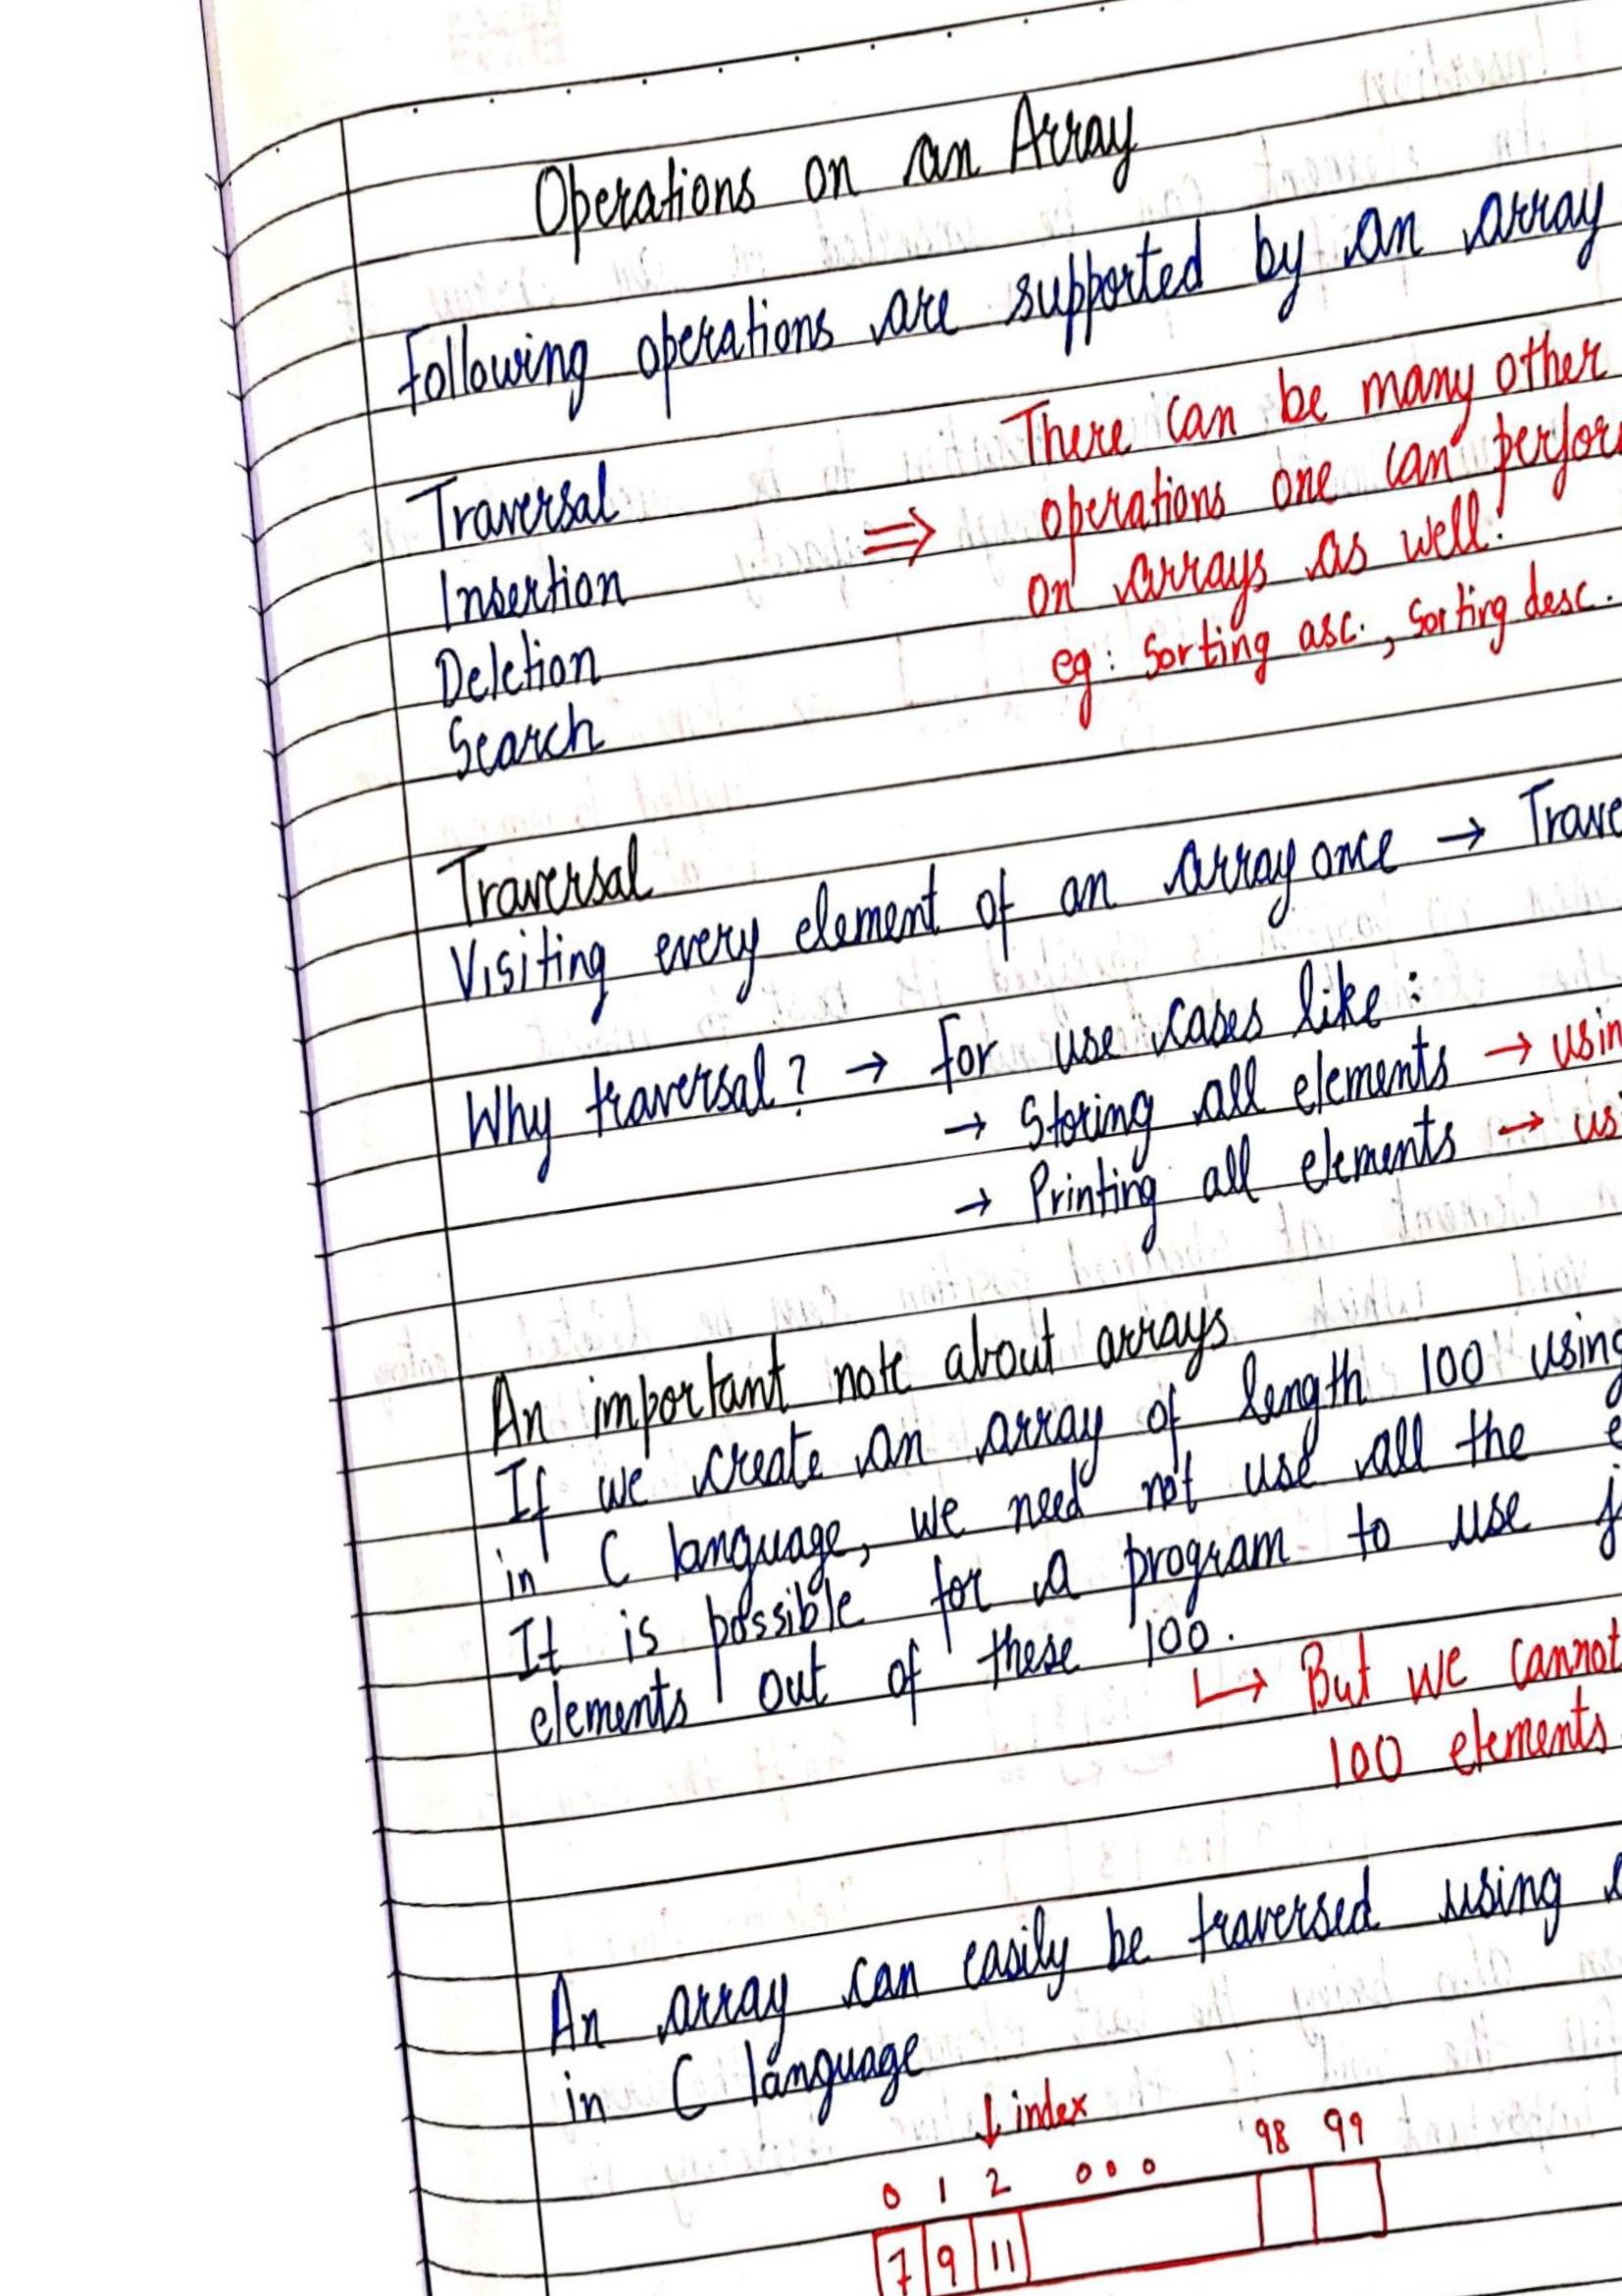 Operations on an Array
Following operations are supported by an array
Traversal
Insertion
Deletion
Search
⇒ There can be many other
operations one can perfor
on arrays as well.
eg: Sorting asc., Sorting desc.
Traversal
Visiting every element of an array once → Trave
Why traversal? → For use cases like:
→ Storing all elements → usin
→ Printing all elements → us
An important note about arrays
If we create an array of length 100 using
in C language, we need not use all the e
It is possible for a program to use j
elements out of these 100.
↳ But we cannot
100 elements.
An array can easily be traversed using
in C language
↓ index
0 1 2 ... 98 99
7 9 11